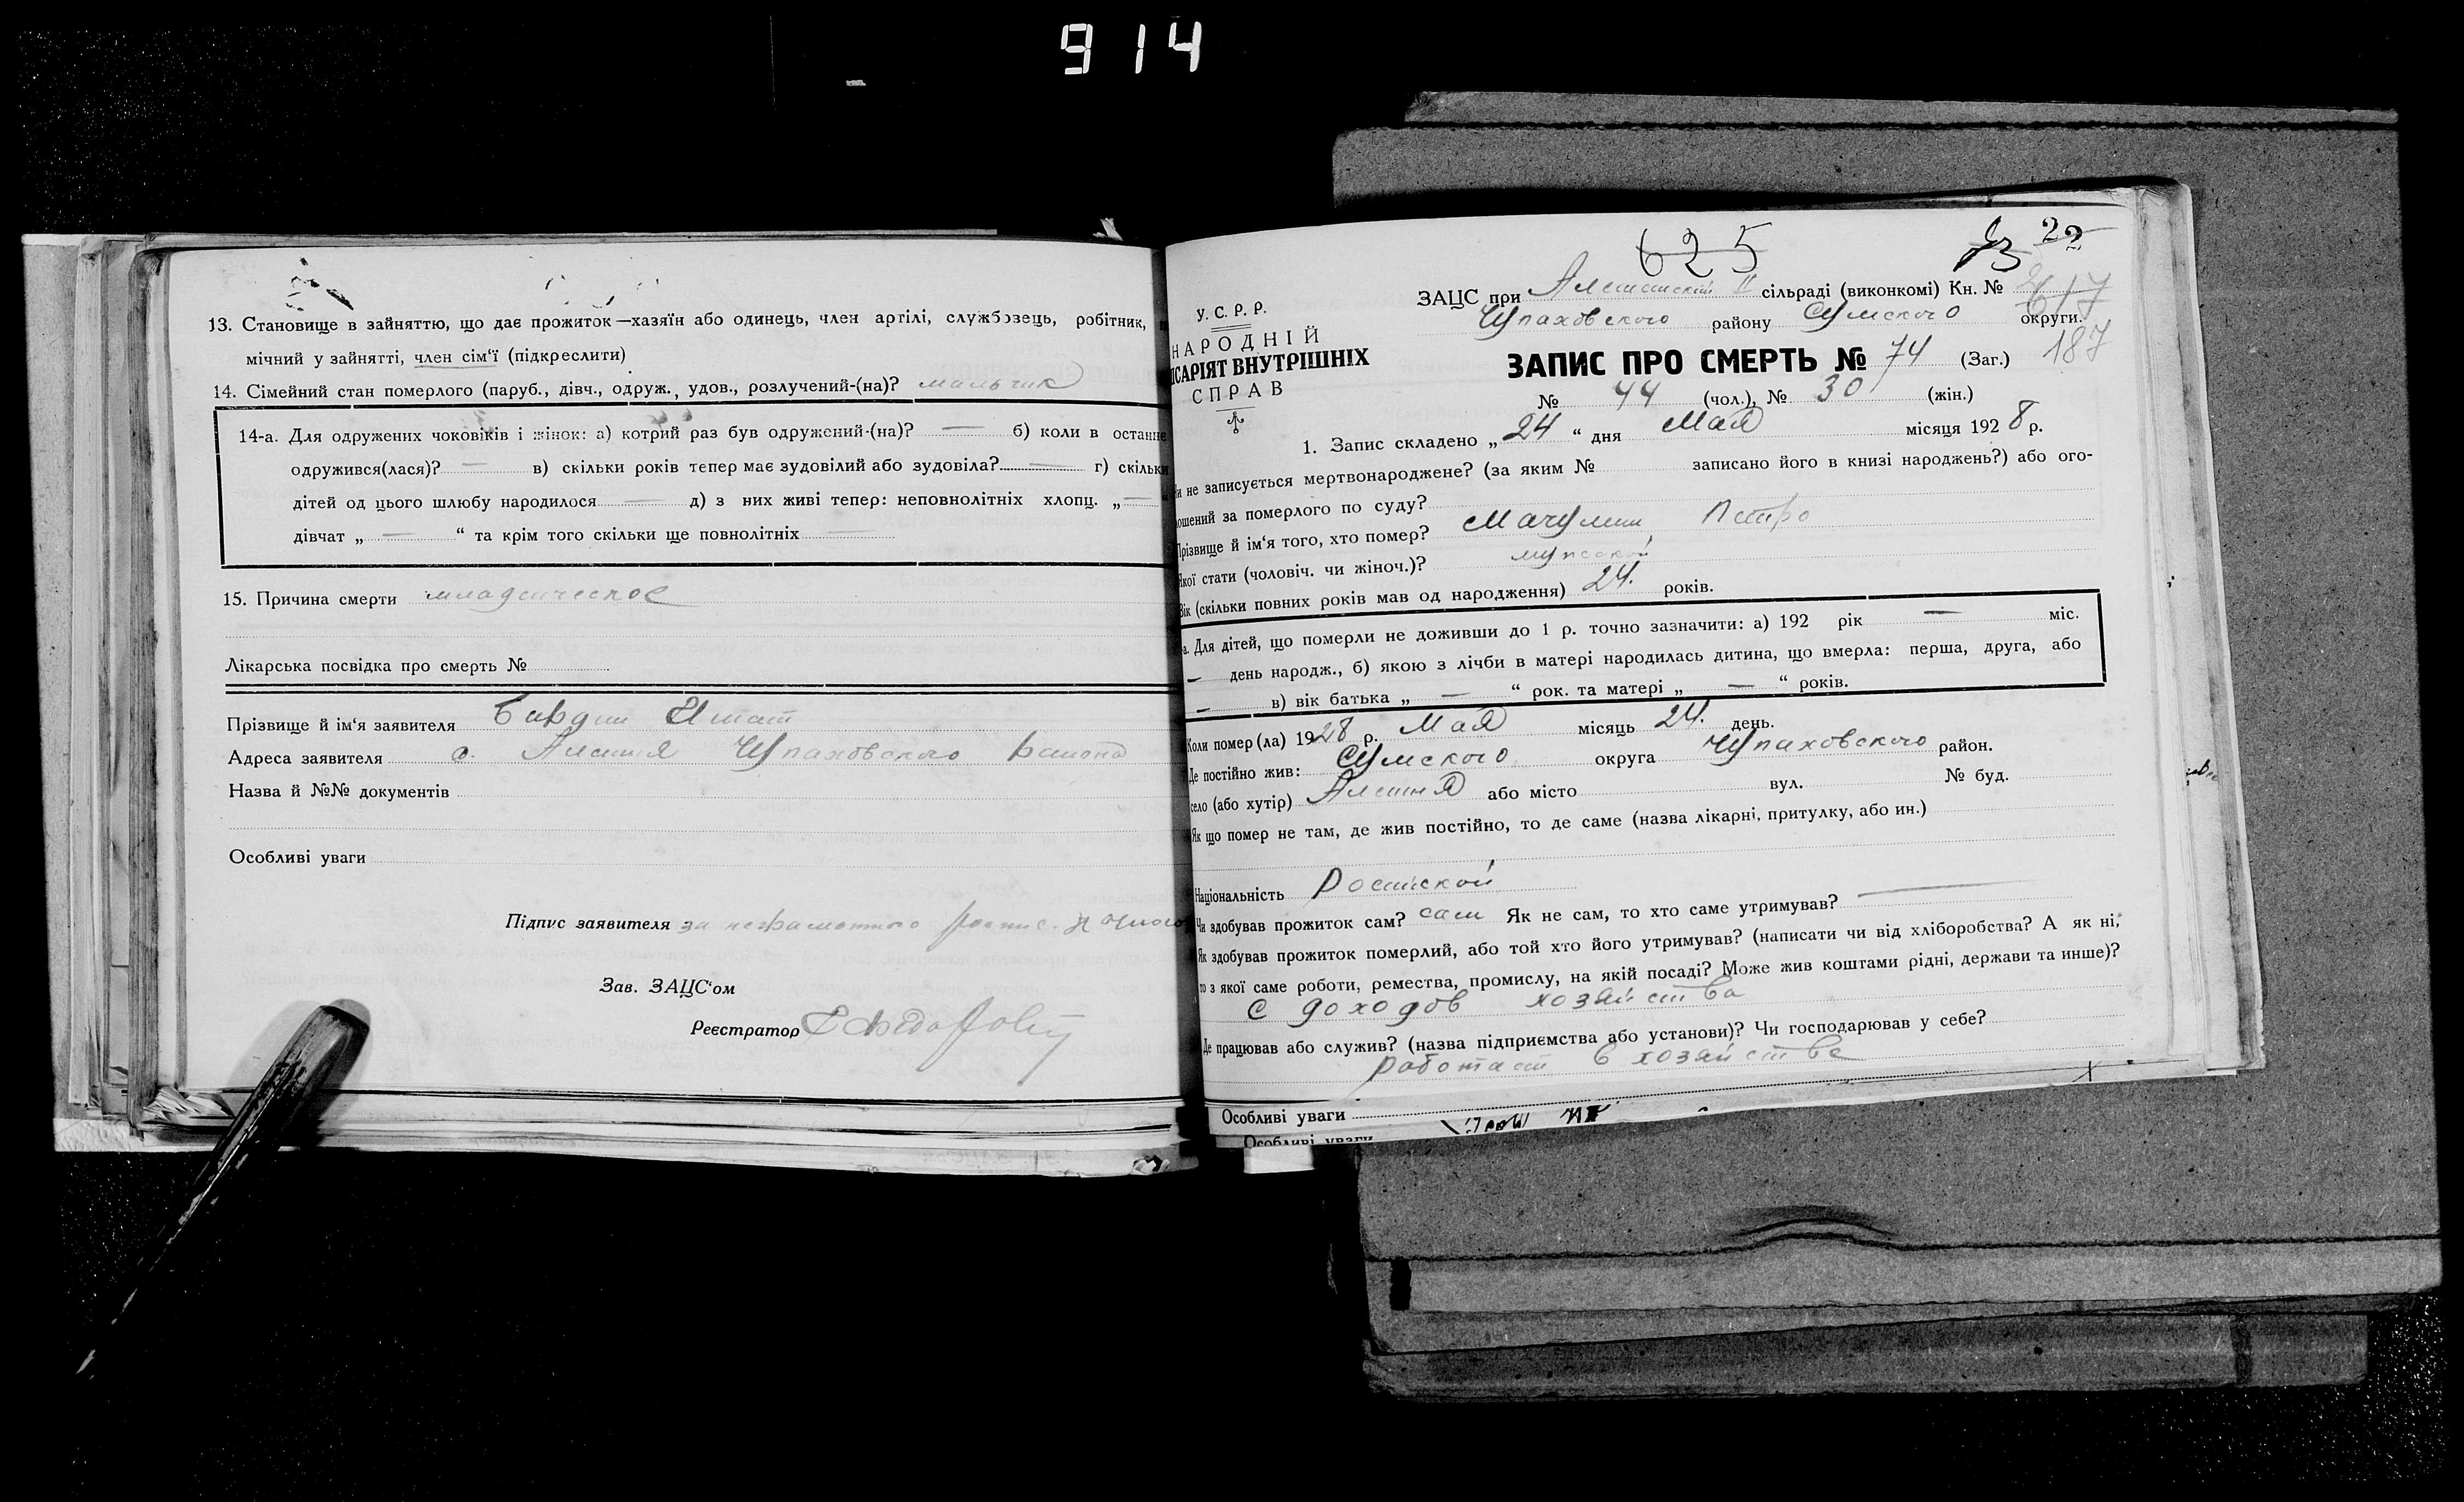 914
13. Становище в зайняттю, що дає прожиток—хазяїн або одинець, член артілі, службовець, робітник,
мічний у зайнятті, член сім'ї (підкреслити)
14. Сімейний стан померлого (паруб., дівч., одруж., удов., розлучений-(на)? мальчик
14-а. Для одружених чоковіків і жінок: а) котрий раз був одружений-(на)? — б) коли в останнє
одружився(лася)? — в) скільки років тепер має зудовілий або зудовіла? — г) скільки
дітей од цього шлюбу народилося — д) з них живі тепер: неповнолітніх хлопц. „ —
дівчат „ — “ та крім того скільки ще повнолітніх —
15. Причина смерти младенческое
Лікарська посвідка про смерть №
Прізвище й ім'я заявителя Игнат
Адреса заявителя с. Алешня Чупаховского района
Назва й №№ документів
Особливі уваги
Підпис заявителя за неграмотного роспис.
Зав. ЗАЦС'ом
Реєстратор
625
22
У. С. Р. Р.
НАРОДНІЙ
ІСАРІЯТ ВНУТРІШНІХ
СПРАВ
ЗАЦС при Алешанской II сільраді (виконкомі) Кн. № 617
Чупаховского району Сумского округи.
187
ЗАПИС ПРО СМЕРТЬ № 74 (Заг.)
№ 44 (чол.), № 30 (жін.)
1. Запис складено „ 24 “ дня Мая місяця 1928 р.
и не записується мертвонароджене? (за яким № записано його в книзі народжень?) або ого-
ошений за померлого по суду?
Прізвище й ім'я того, хто помер? Петро
Якої стати (чоловіч. чи жіноч.)? мужской
Вік (скільки повних років мав од народження) 24. років.
-а. Для дітей, що померли не доживши до 1 р. точно зазначити: а) 192 рік — міс.
— день народж., б) якою з лічби в матері народилась дитина, що вмерла: перша, друга, або
— в) вік батька „ — “ рок. та матері „ — “ років.
Коли помер (ла) 1928 р. Мая місяць 24. день.
Де постійно жив: Сумского округа Чупаховского район.
село (або хутір) Алешня або місто вул. № буд.
Як що помер не там, де жив постійно, то де саме (назва лікарні, притулку, або ин.)
Національність Росийской
Чи здобував прожиток сам? сам Як не сам, то хто саме утримував? —
Як здобував прожиток померлий, або той хто його утримував? (написати чи від хліборобства? А як ні,
то з якої саме роботи, ремества, промислу, на якій посаді? Може жив коштами рідні, держави та инше)?
С доходов хозяйства
Де працював або служив? (назва підприємства або установи)? Чи господарював у себе?
работает в хозяйстве
Особливі уваги
Особливі уваги